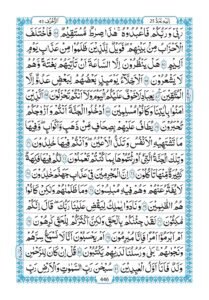 الزخرف ٤٣
اليه يرد ٢٥
رَبِّيْ وَرَبُّكُمْ فَاعْبُدُوْهُ هٰذَا صِرَاطٌ مُّسْتَقِيْمٌ فَاخْتَلَفَ
الْاَحْزَابُ مِنْۢ بَيْنِهِمْ فَوَيْلٌ لِّلَّذِيْنَ ظَلَمُوْا مِنْ عَذَابِ يَوْمٍ
اَلِيْمٍ هَلْ يَنْظُرُوْنَ اِلَّا السَّاعَةَ اَنْ تَاْتِيَهُمْ بَغْتَةً وَّهُمْ
لَا يَشْعُرُوْنَ اَلْاَخِلَّآءُ يَوْمَئِذٍۭ بَعْضُهُمْ لِبَعْضٍ عَدُوٌّ اِلَّا
الْمُتَّقِيْنَ يٰعِبَادِ لَا خَوْفٌ عَلَيْكُمُ الْيَوْمَ وَلَآ اَنْتُمْ تَحْزَنُوْنَ اَلَّذِيْنَ
اٰمَنُوْا بِاٰيٰتِنَا وَكَانُوْا مُسْلِمِيْنَ اُدْخُلُوا الْجَنَّةَ اَنْتُمْ وَاَزْوَاجُكُمْ
تُحْبَرُوْنَ يُطَافُ عَلَيْهِمْ بِصِحَافٍ مِّنْ ذَهَبٍ وَّاَكْوَابٍ وَفِيْهَا
مَا تَشْتَهِيْهِ الْاَنْفُسُ وَتَلَذُّ الْاَعْيُنُ وَاَنْتُمْ فِيْهَا خٰلِدُوْنَ
وَتِلْكَ الْجَنَّةُ الَّتِيْٓ اُوْرِثْتُمُوْهَا بِمَا كُنْتُمْ تَعْمَلُوْنَ لَكُمْ فِيْهَا فَاكِهَةٌ
كَثِيْرَةٌ مِّنْهَا تَاْكُلُوْنَ اِنَّ الْمُجْرِمِيْنَ فِيْ عَذَابِ جَهَنَّمَ خٰلِدُوْنَ
لَا يُفَتَّرُ عَنْهُمْ وَهُمْ فِيْهِ مُبْلِسُوْنَ وَمَا ظَلَمْنٰهُمْ وَلٰكِنْ كَانُوْا
هُمُ الظّٰلِمِيْنَ وَنَادَوْا يٰمٰلِكُ لِيَقْضِ عَلَيْنَا رَبُّكَ قَالَ اِنَّكُمْ
مّٰكِثُوْنَ لَقَدْ جِئْنٰكُمْ بِالْحَقِّ وَلٰكِنَّ اَكْثَرَكُمْ لِلْحَقِّ كٰرِهُوْنَ
اَمْ اَبْرَمُوْٓا اَمْرًا فَاِنَّا مُبْرِمُوْنَ اَمْ يَحْسَبُوْنَ اَنَّا لَا نَسْمَعُ سِرَّهُمْ
وَنَجْوٰىهُمْ بَلٰى وَرُسُلُنَا لَدَيْهِمْ يَكْتُبُوْنَ قُلْ اِنْ كَانَ لِلرَّحْمٰنِ
وَلَدٌ فَاَنَا اَوَّلُ الْعٰبِدِيْنَ سُبْحٰنَ رَبِّ السَّمٰوٰتِ وَالْاَرْضِ رَبِّ